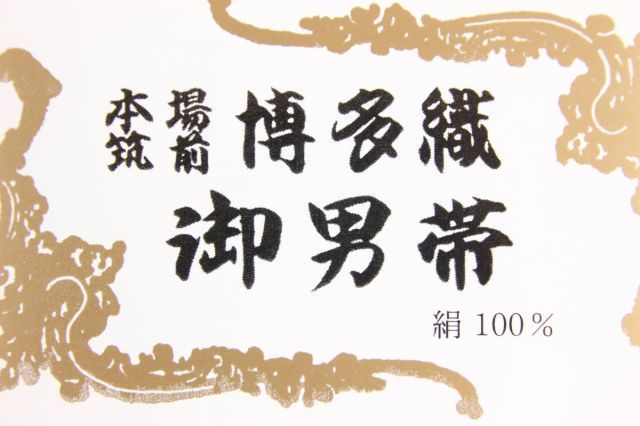 本場筑前 博多織
御男帯
絹 100%